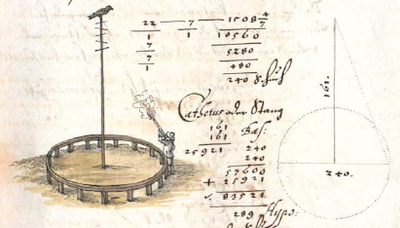 22 — 7 — 1508 4/7
1 1 10560
7 5280
7 480
1 240 Schuch
Cathetus oder Stang
161
161 Bas:
25921 240
240
57600
+ 25921
√. 83521
289 Hypo:
161.
240.